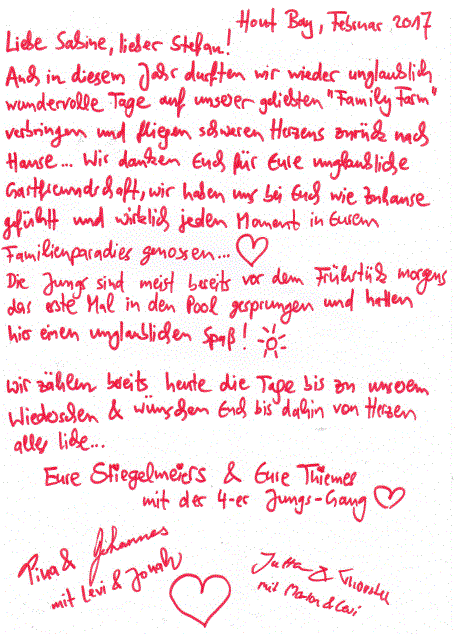 Hout Bay, Februar 2017
Liebe Sabine, lieber Stefan!
Auch in diesem Jahr durften wir wieder unglaublich
wundervolle Tage auf unserer geliebten "Family Farm"
verbringen und fliegen schweren Herzens zurück nach
Hause... Wir danken Euch für Eure unglaubliche
Gastfreundschaft, wir haben uns bei Euch wie zuhause
gefühlt und wirklich jeden Moment in Eurem
Familienparadies genossen... ♡
Die Jungs sind meist bereits vor dem Frühstück morgens
das erste Mal in den Pool gesprungen und hatten
hier einen unglaublichen Spaß!
Wir zählen bereits heute die Tage bis zu unserem
Wiedersehen & wünschen Euch bis dahin von Herzen
alles liebe...
Eure Stiegelmeiers & Eure Thiemes
mit der 4-er Jungs-Gang ♡
Pina & Johannes
mit Levi & Jonah
Jutta & Thorsten
mit & Levi